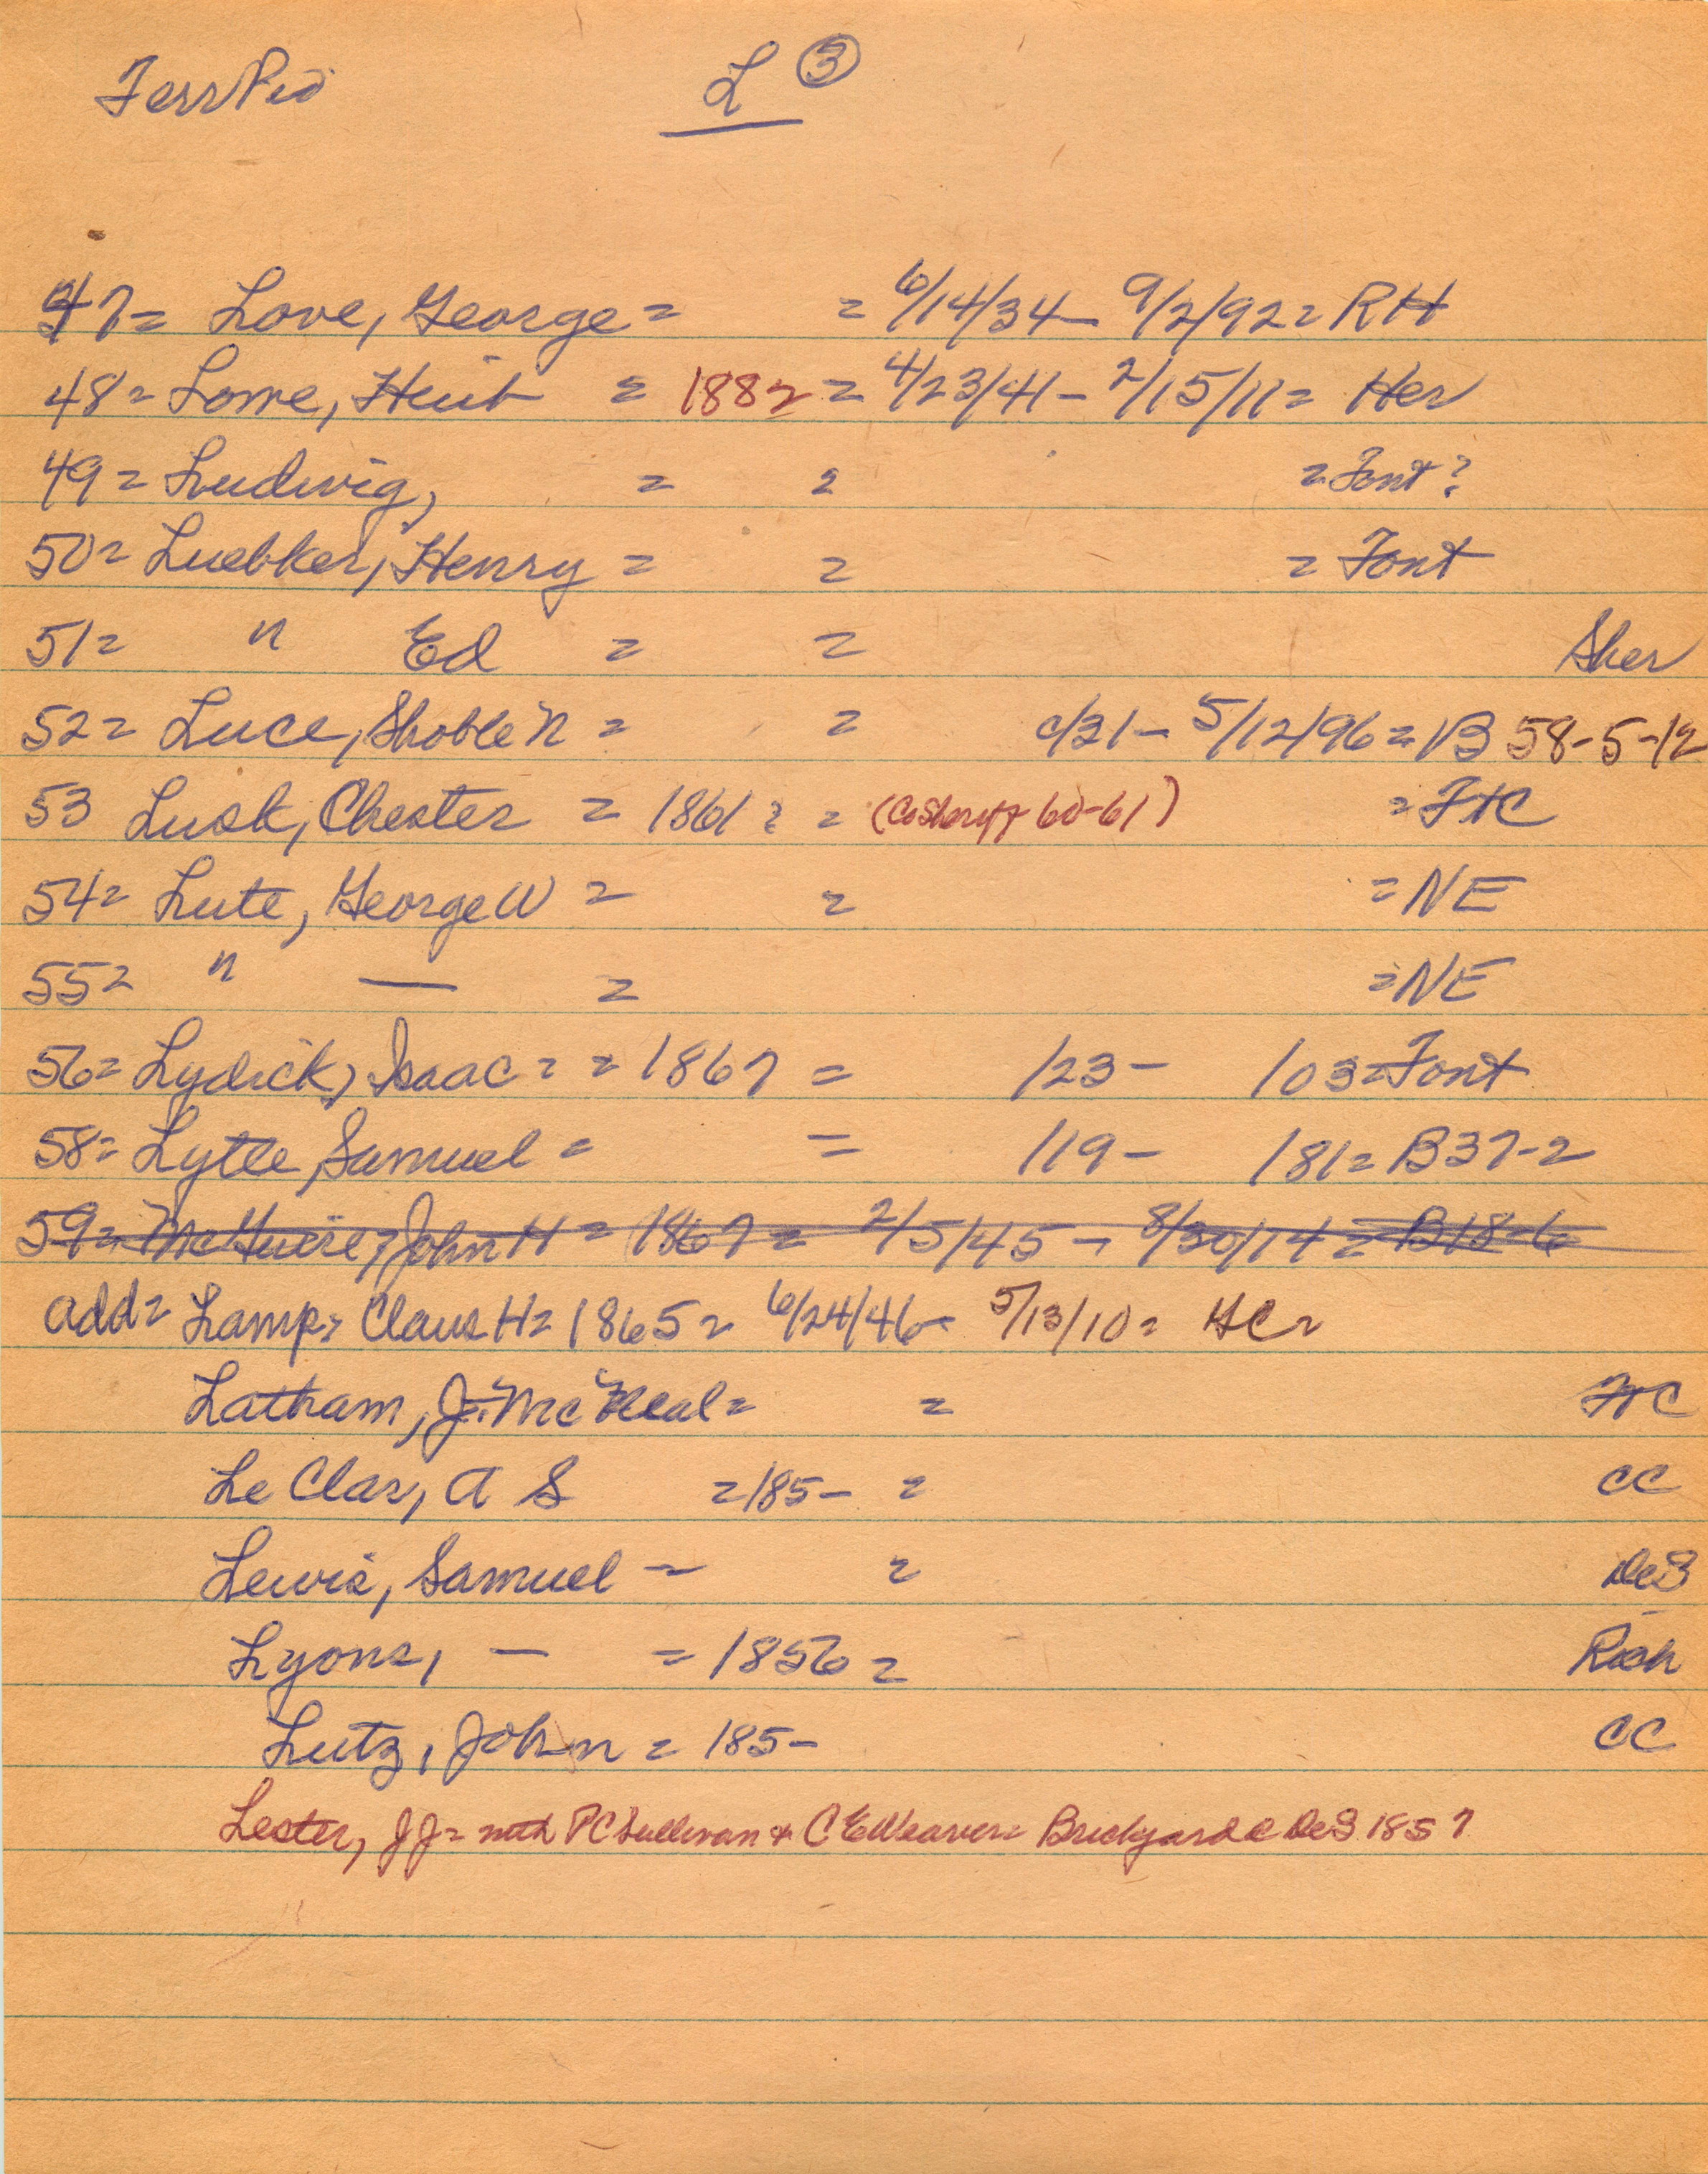 Terr Pio L ③
47= Love, George = = 6/14/34- 9/2/92= RH
48= Lowe, = 1882 = 4/23/41- 2/15/11= Her
49= Ludwig, = = = Font?
50= Luebker, Henry = = = Font
51= " Ed = =
52= Luce, Noble N = = c/21- 5/12/96= B 58-5-12
53 Lusk, Chester = 1861? = (Co Sheriff 60-61) = FtC
54= Lute, George W = = = NE
55= " — = = NE
56= Lydick, Isaac = = 1867 = /23- /03= Font
58= Lytle, Samuel = = /19- /81= B37-2
59= McGuire, John H = 1867= 2/5/45- 8/30/14= B18-6
add= Lamp, Claus H= 1865= 6/24/46- 5/13/10= =
Latham, J. McNeal= = FtC
Le Clar, A S =185- = CC
Lewis, Samuel = = DeS
Lyons, — = 1856= Rich
Lutz, John = 185- CC
Lester, JJ= with PC Sullivan + C E Weaver= Brickyard @ DeS 1857